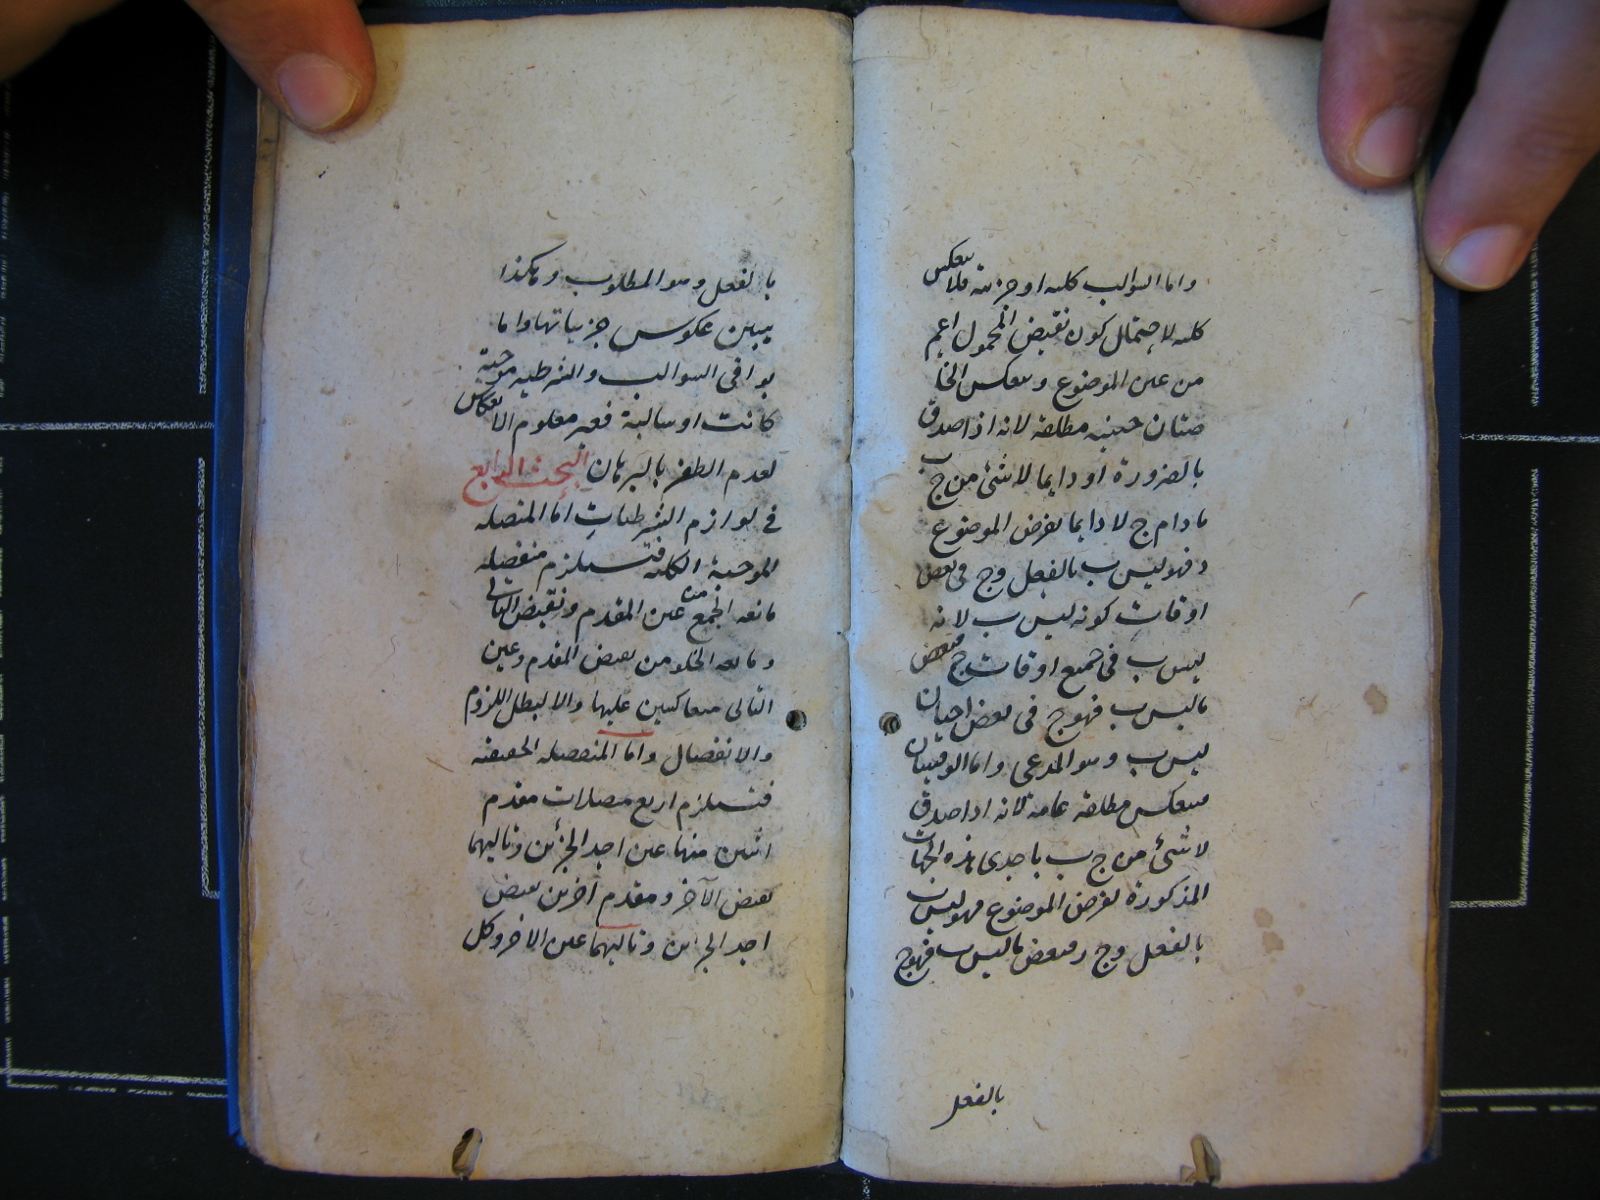 واما السوالب كلية او جزئية فلا تنعكس
كلية لاحتمال كون نقيض المحمول اعم
من عين الموضوع وتنعكس الخا
صتان حينية مطلقة لانه اذا صدق
بالضرورة او دايما لا شئ من ج ب
مادام ج لا دايما نفرض الموضوع
د فهو ليس ب بالفعل وج فى بعض
اوقات كونه ليس ب لانه
ليس ب فى جميع اوقات ج فبعض
ما ليس ب فهو ج فى بعض احيان
ليس ب وهو المدعى واما الوقتيتان
فتنعكس مطلقة عامة لانه اذا صدق
لا شئ من ج ب باحدى هذه الجهات
المذكورة نفرض الموضوع د فهو ليس ب
بالفعل وج فبعض ما ليس ب فهو ج
بالفعل
بالفعل وهو المطلوب وهكذا
يبين عكوس جزئياتها واما
بواقى السوالب والشرطية موجبة
كانت او سالبة فغير معلوم الانعكاس
لعدم الظفر بالبرهان البحث الرابع
فى لوازم الشرطيات اما المتصلة
الموجبة الكلية فتستلزم منفصلة
مانعة الجمع من عين المقدم ونقيض التالى
ومانعة الخلو من نقيض المقدم وعين
التالى متعاكسين عليها والا لبطل اللزوم
والانفصال واما المنفصلة الحقيقية
فتستلزم اربع متصلات مقدم
اثنين منها عين احد الجزئين وتاليهما
نقيض الآخر ومقدم آخرين نقيض
احد الجزئين وتاليهما عين الاخر وكل